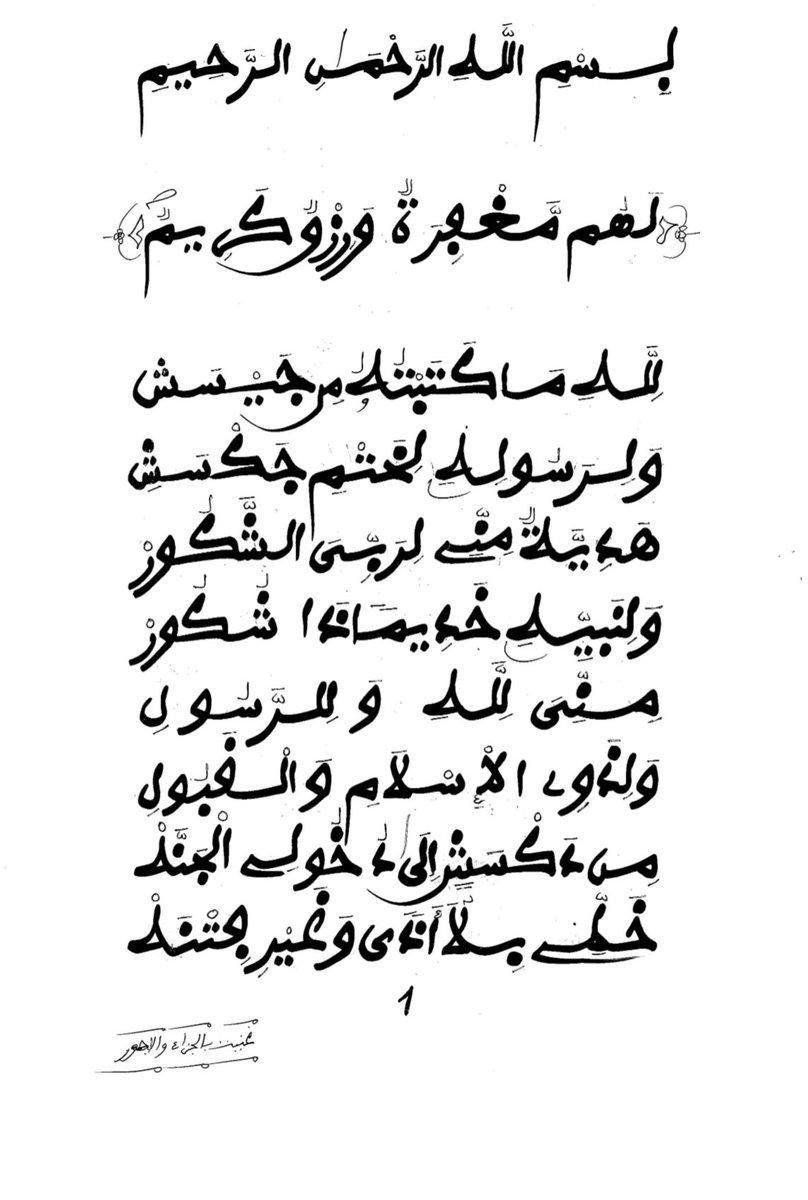 بِسْمِ اللَّهِ الرَّحْمَنِ الرَّحِيمِ
لَهُم مَّغْفِرَةٌ وَرِزْقٌ كَرِيمٌ
لِلَّهِ مَا كَتَبْتُهُ مِن جَيْسَشِ
وَلِرَسُولِهِ لِخَتْمِ جَكْسَشِ
هَدِيَّةً مِنِّي لِرَبِّيَ الشَّكُورْ
وَلِنَبِيِّهِ خَدِيمًا ذَا شُكُورْ
مِنِّيَ لِلَّهِ وَلِلرَّسُولِ
وَلِذَوِي الْإِسْلَامِ وَالْقَبُولِ
مِن دَكْسَشٍ إِلَى دُخُولِي الْجَنَّهْ
خَطِّي بِلَا أَذًى وَغَيْرِ فِتْنَهْ
1